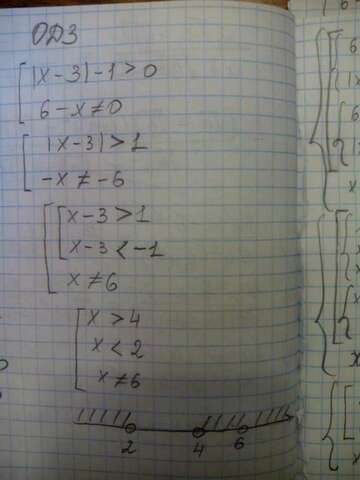 ОДЗ
[ |x-3|-1>0
6-x≠0
[ |x-3|>1
-x≠-6
{ [ x-3>1
x-3<-1
x≠6
[ x>4
x<2
x≠6
2 4 6